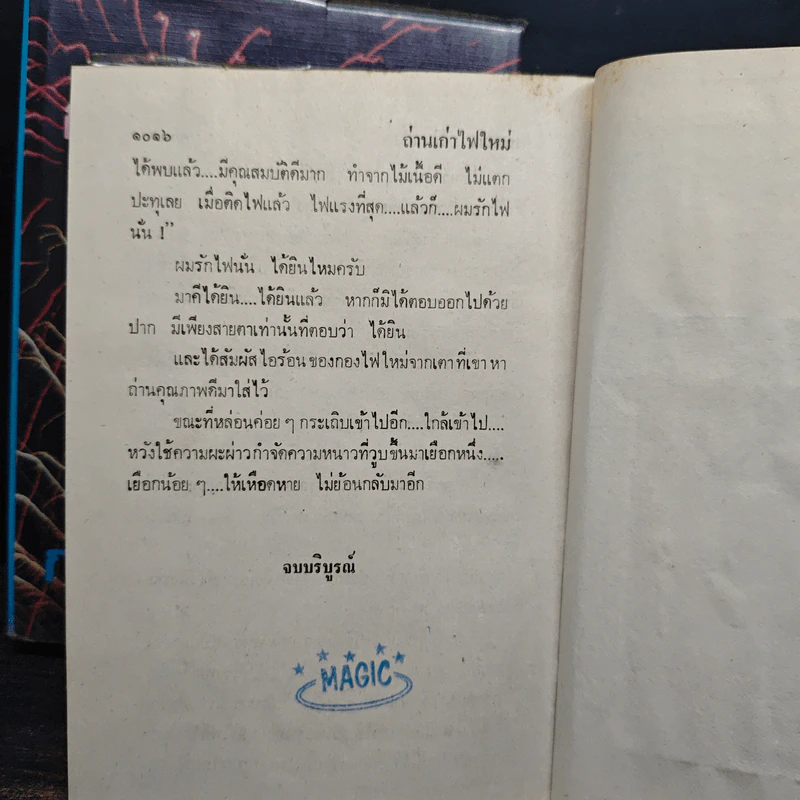 ๑๐๑๖ ถ่านเก่าไฟใหม่
ได้พบแล้ว....มีคุณสมบัติดีมาก ทำจากไม้เนื้อดี ไม่แตก
ปะทุเลย เมื่อติดไฟแล้ว ไฟแรงที่สุด....แล้วก็....ผมรักไฟ
นั่น !”
ผมรักไฟนั่น ได้ยินไหมครับ
มาคีได้ยิน....ได้ยินแล้ว หากก็มิได้ตอบออกไปด้วย
ปาก มีเพียงสายตาเท่านั้นที่ตอบว่า ได้ยิน
และได้สัมผัสไอร้อนของกองไฟใหม่จากเตาที่เขาหา
ถ่านคุณภาพดีมาใส่ไว้
ขณะที่หล่อนค่อย ๆ กระเถิบเข้าไปอีก....ใกล้เข้าไป....
หวังใช้ความผะผ่าวกำจัดความหนาวที่วูบขึ้นมาเยือกหนึ่ง.....
เยือกน้อย ๆ....ให้เหือดหาย ไม่ย้อนกลับมาอีก
จบบริบูรณ์
MAGIC